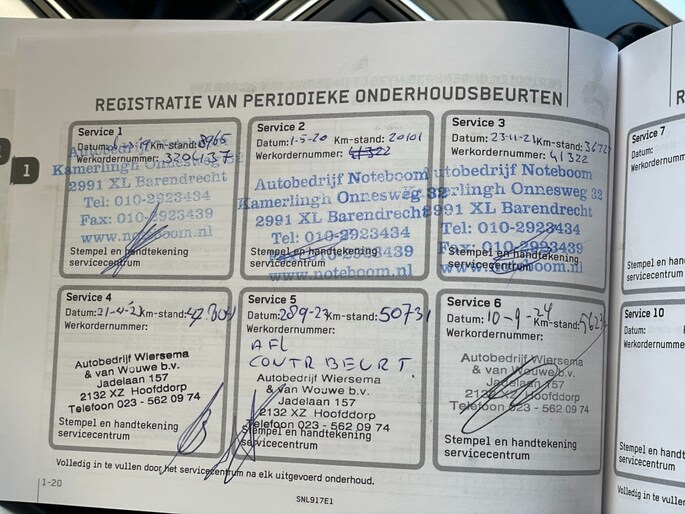 REGISTRATIE VAN PERIODIEKE ONDERHOUDSBEURTEN
Service 1
Datum: Km-stand: 8965
Werkordernummer: 3204137
Autobedrijf Noteboom
Kamerlingh Onnesweg 32
2991 XL Barendrecht
Tel: 010-2923434
Fax: 010-2923439
www.noteboom.nl
Stempel en handtekening
servicecentrum
Service 2
Datum: 1-5-20 Km-stand: 20101
Werkordernummer: 41322
Autobedrijf Noteboom
Kamerlingh Onnesweg 32
2991 XL Barendrecht
Tel: 010-2923434
Stempel en handtekening
servicecentrum
www.noteboom.nl
Service 3
Datum: 23-11-21 Km-stand: 3672
Werkordernummer: 41322
utobedrijf Noteboom
erlingh Onnesweg 32
2991 XL Barendrecht
Tel: 010-2923434
Fax: 010-2923439
Stempel en handtekening
servicecentrum
www.noteboom.nl
Service 7
Datum:
Werkordernumme
Stempel en hand
servicecentrum
Service 4
Datum: Km-stand:
Werkordernummer:
Autobedrijf Wiersema
& van Wouwe b.v.
Jadelaan 157
2132 XZ Hoofddorp
Telefoon 023 - 562 09 74
Stempel en handtekening
servicecentrum
Service 5
Datum: 289-23 Km-stand: 50731
Werkordernummer:
AFL
CONTR BEURT.
Autobedrijf Wiersema
& van Wouwe b.v.
Jadelaan 157
2132 XZ Hoofddorp
Telefoon 023 - 562 09 74
Stempel en handtekening
servicecentrum
Service 6
Datum: 10-9-24 Km-stand:
Werkordernummer:
Autobedrijf Wiersema
& van Wouwe b.v.
Jadelaan 157
2132 XZ Hoofddorp
Telefoon 023 - 562 09 74
Stempel en handtekening
servicecentrum
Service 10
Datum:
Werkordernumme
Stempel en hand
servicecentrum
Volledig in te vullen door het servicecentrum na elk uitgevoerd onderhoud.
Volledig in te vul
1
1-20
SNL917E1